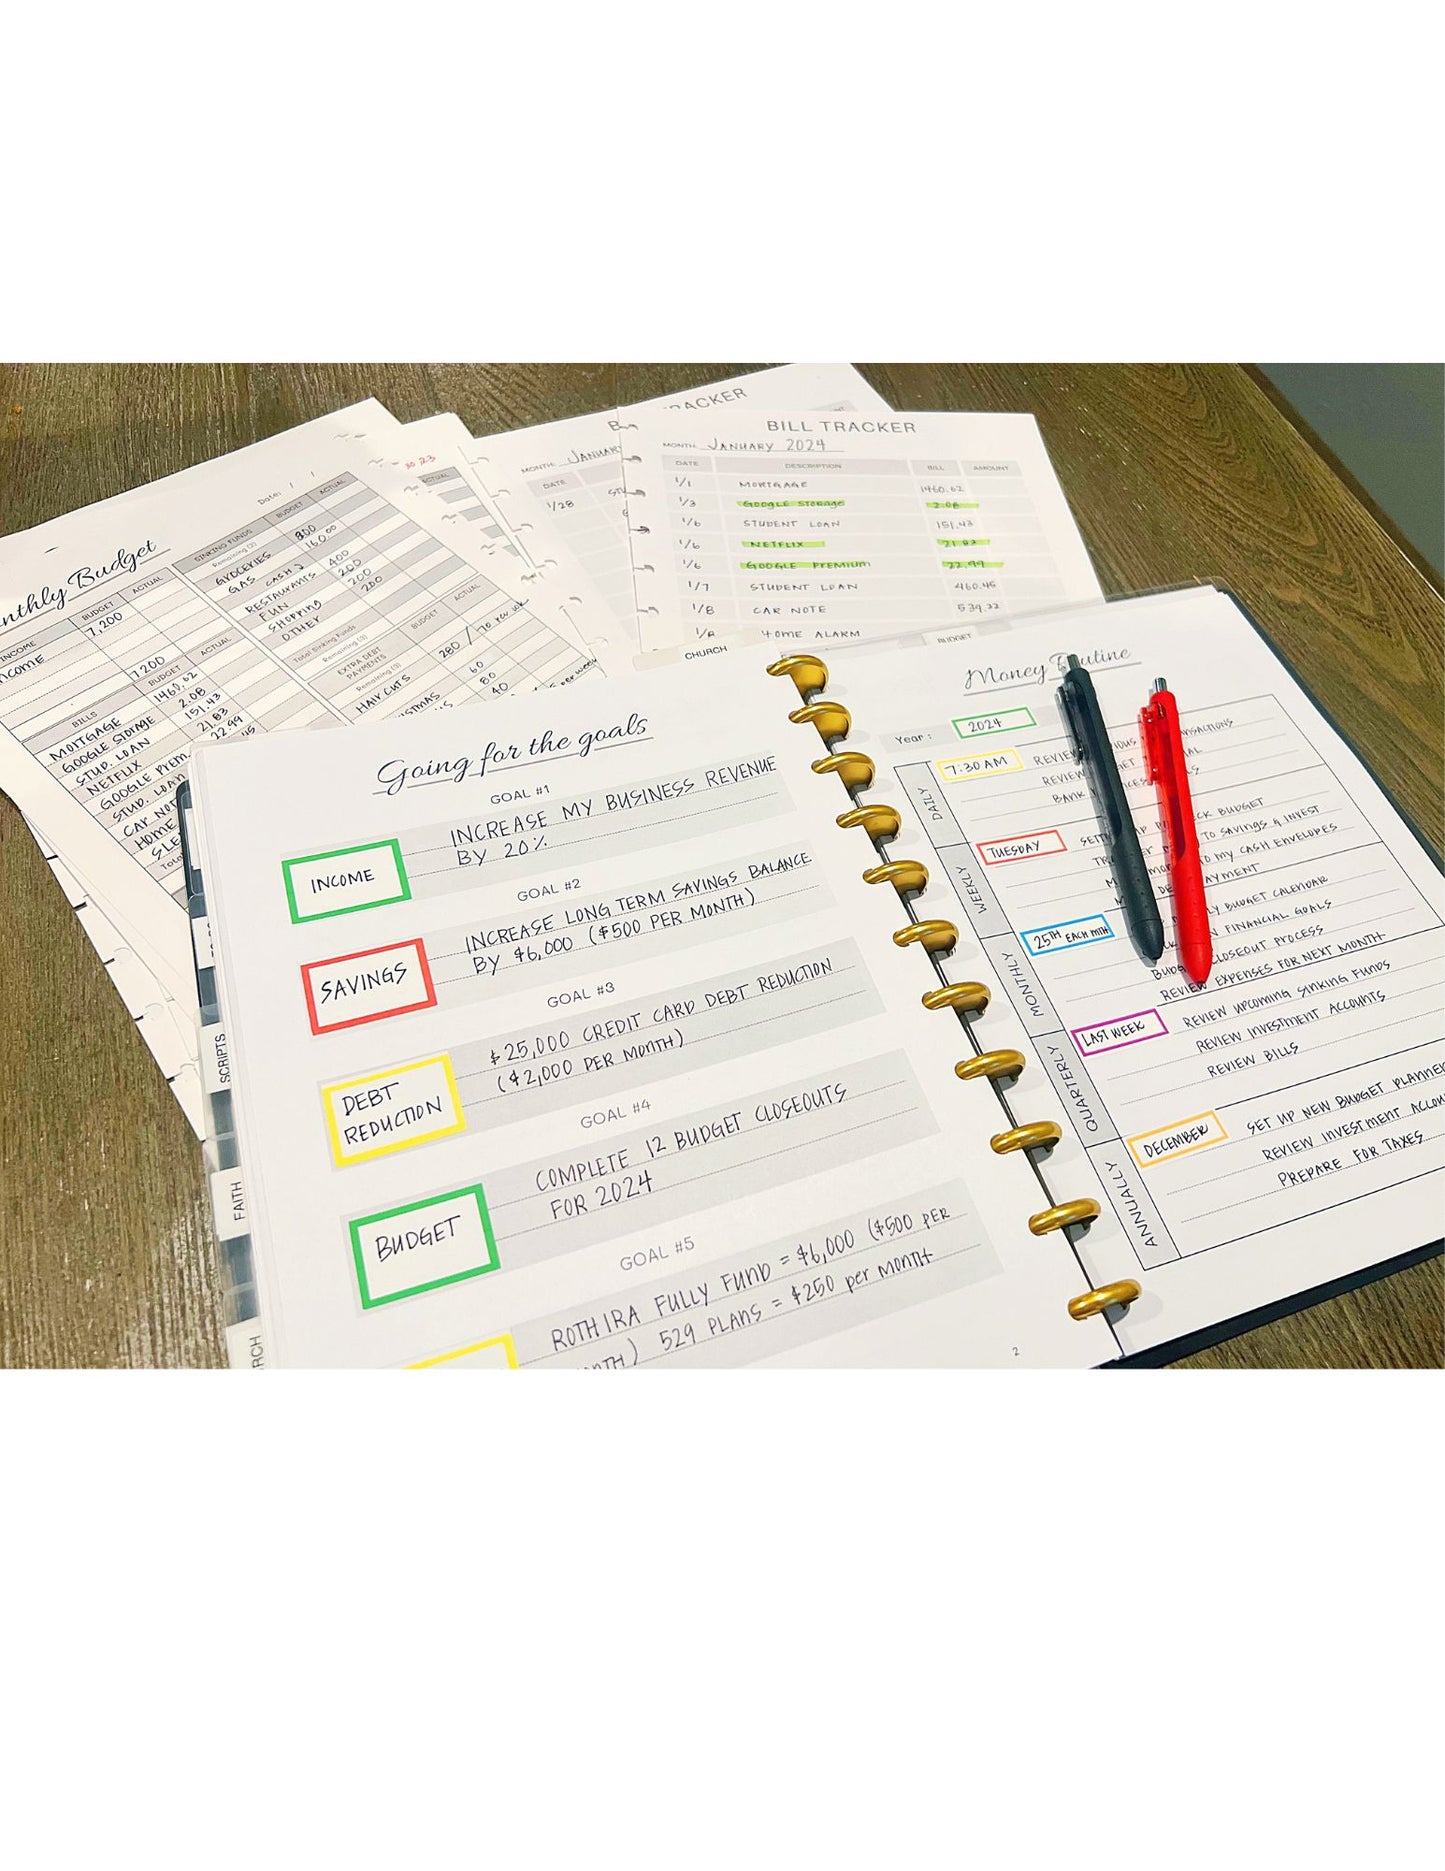 TRACKER
BILL TRACKER
MONTH: JANUARY 2024
DATE DESCRIPTION BILL AMOUNT
1/1 MORTGAGE 1460.62
1/3 GOOGLE STORAGE 2.08
1/6 STUDENT LOAN 151.43
1/6 NETFLIX 21.83
1/6 GOOGLE PREMIUM 22.99
1/7 STUDENT LOAN 460.45
1/8 CAR NOTE 539.22
HOME ALARM
CHURCH
BUDGET
MONTH: JANUARY
DATE
1/28
30,23
Date: / /
Monthly Budget
INCOME BUDGET ACTUAL
INCOME 7,200
7200
BILLS BUDGET ACTUAL
MORTGAGE 1460.62
GOOGLE STORAGE 2.08
STUD. LOAN 151.43
NETFLIX 21.83
GOOGLE PREM. 22.99
STUD. LOAN
CAR NOT
HOME
SLE
SINKING FUNDS BUDGET ACTUAL
Remaining (2)
GROCERIES 800
GAS CASH 2 160.00
RESTAURANTS 400
FUN 200
SHOPPING 200
OTHER 200
Total Sinking Funds
Remaining (3)
EXTRA DEBT PAYMENTS BUDGET ACTUAL
Remaining (3)
HAIR CUTS 280 / 70 per wk
60
80
40
Going for the goals
GOAL #1
INCOME
INCREASE MY BUSINESS REVENUE
BY 20%
GOAL #2
SAVINGS
INCREASE LONG TERM SAVINGS BALANCE
BY $6,000 ($500 PER MONTH)
GOAL #3
DEBT
REDUCTION
$25,000 CREDIT CARD DEBT REDUCTION
($2,000 PER MONTH)
GOAL #4
BUDGET
COMPLETE 12 BUDGET CLOSEOUTS
FOR 2024
GOAL #5
ROTH IRA FULLY FUND = $6,000 ($500 PER
MONTH) 529 PLANS = $250 per MONTH
2
SCRIPTS
FAITH
Money Routine
Year: 2024
DAILY
7:30 AM
REVIEW
REVIEW
BANK
WEEKLY
TUESDAY
CK BUDGET
TO SAVINGS & INVEST
TO MY CASH ENVELOPES
PAYMENT
MONTHLY
25TH EACH MTH
BUDGET CALENDAR
FINANCIAL GOALS
CLOSEOUT PROCESS
REVIEW EXPENSES FOR NEXT MONTH
QUARTERLY
LAST WEEK
REVIEW UPCOMING SINKING FUNDS
REVIEW INVESTMENT ACCOUNTS
REVIEW BILLS
ANNUALLY
DECEMBER
SET UP NEW BUDGET PLANNER
REVIEW INVESTMENT ACCOU
PREPARE FOR TAXES